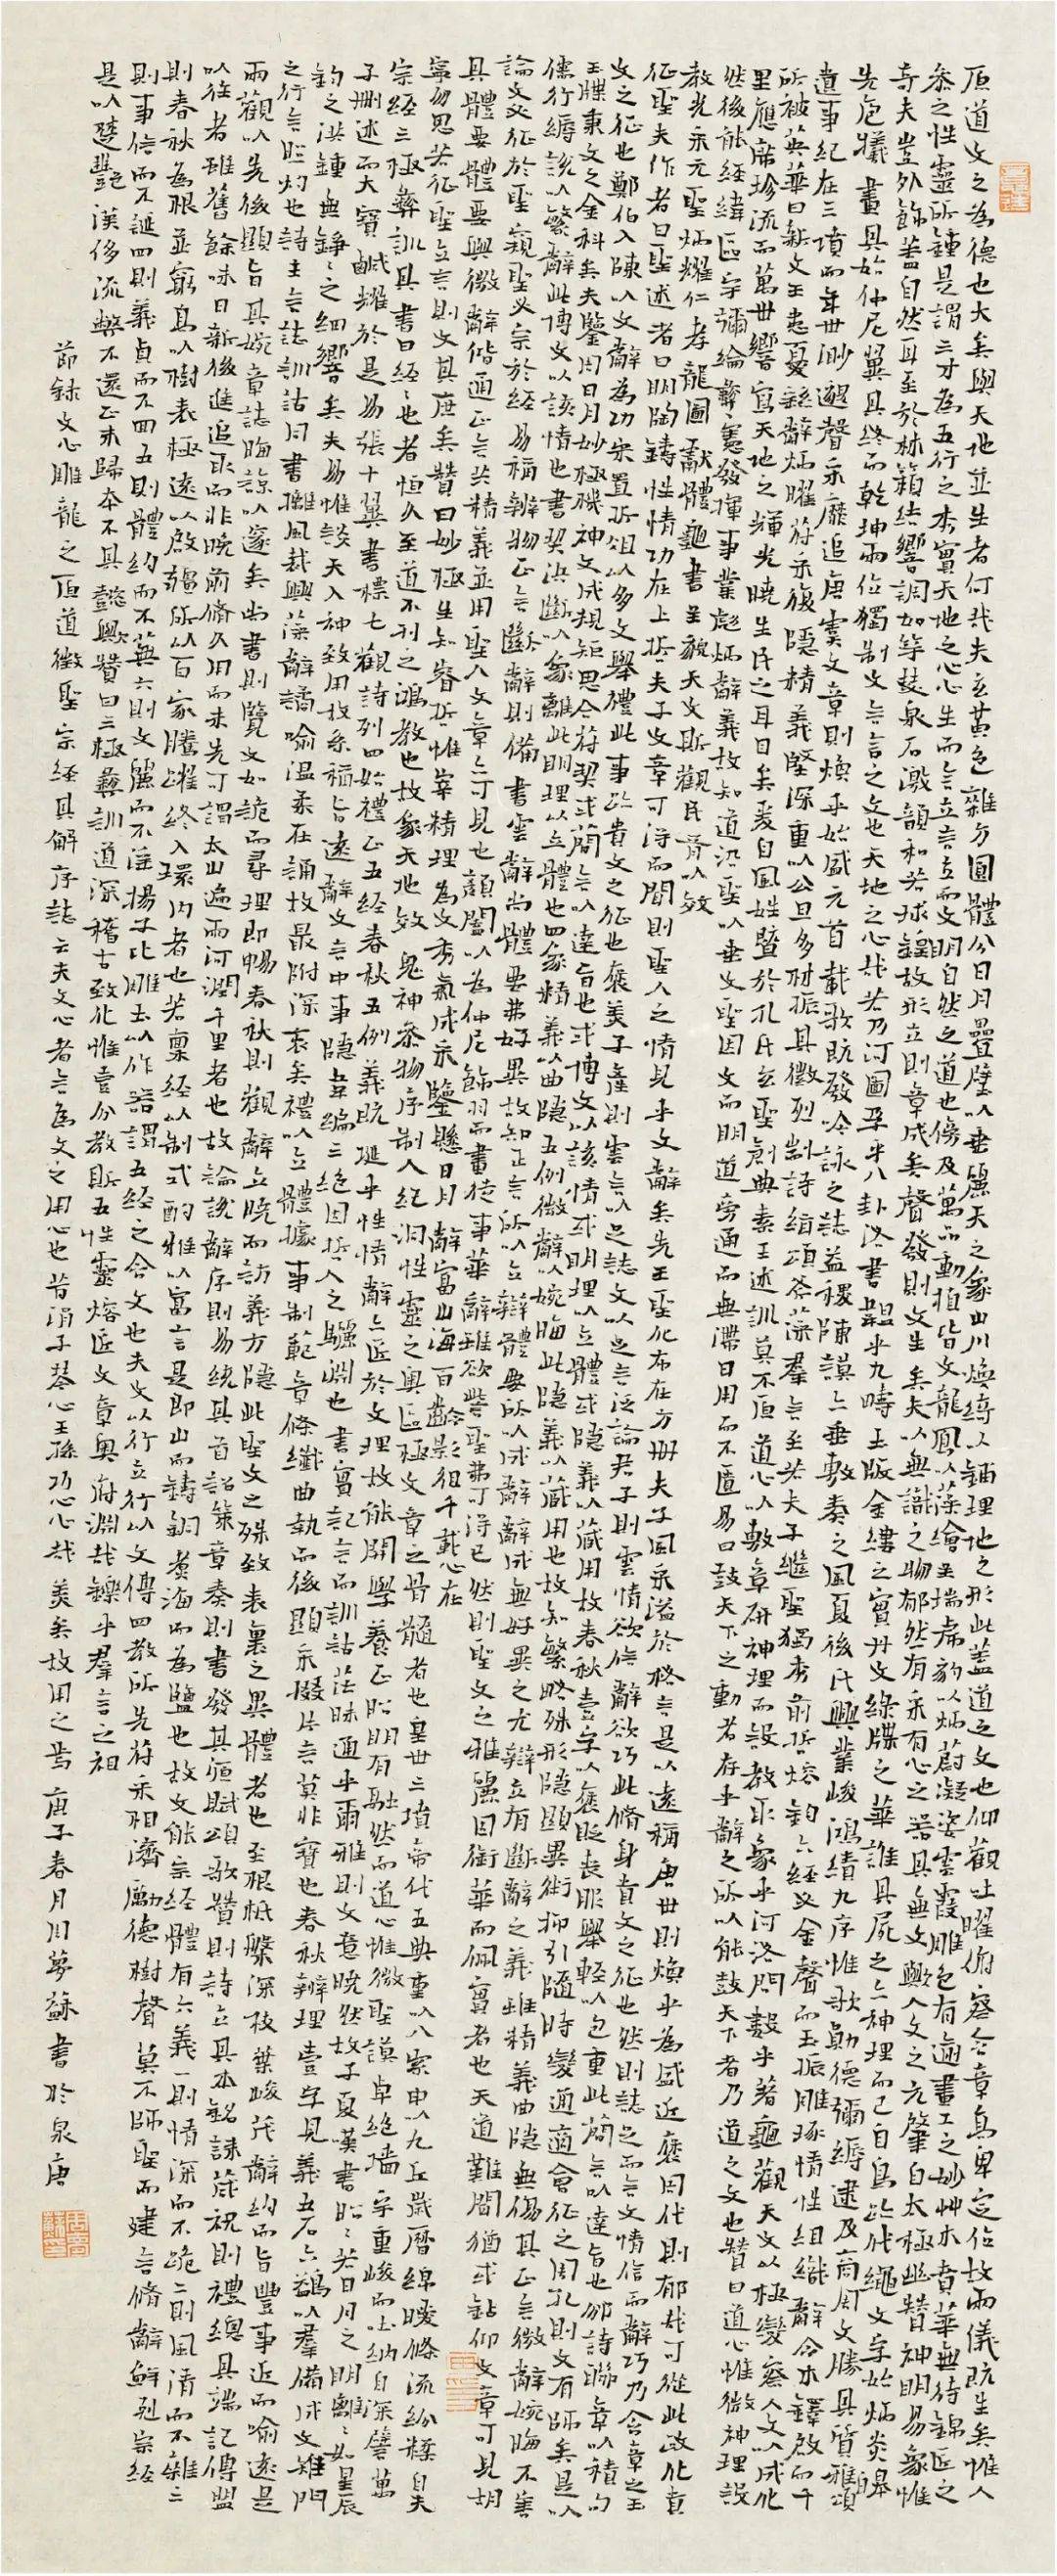 原道文之為德也大矣與天地並生者何哉夫玄黄色雜方圓體分日月疊璧以垂麗天之象山川煥綺以鋪理地之形此蓋道之文也仰觀吐曜俯察含章高卑定位故兩儀既生矣惟人
參之性靈所鍾是謂三才為五行之秀實天地之心心生而言立言立而文明自然之道也傍及萬品動植皆文龍鳳以藻繪呈瑞虎豹以炳蔚凝姿雲霞雕色有逾畫工之妙艸木賁華無待錦匠之
奇夫豈外飾蓋自然耳至於林籟結響調如竽瑟泉石激韻和若球鍠故形立則章成矣聲發則文生矣夫以無識之物郁然有采有心之器其無文歟人文之元肇自太極幽贊神明易象惟
先庖犧畫其始仲尼翼其終而乾坤兩位獨制文言言之文也天地之心哉若乃河圖孕乎八卦洛書韞乎九疇玉版金縷之實丹文綠牒之華誰其尸之亦神理而已自鳥跡代繩文字始炳炎皞
遺事紀在三墳而年世渺邈聲采靡追唐虞文章則煥乎始盛元首載歌既發吟詠之誌益稷陳謨亦垂敷奏之風夏後氏興業峻鴻績九序惟歌勛德彌縟逮及商周文勝其質雅頌
所被英華日新文王患憂繇辭炳曜符采復隱精義堅深重以公旦多材振其徽烈剬詩緝頌斧藻羣言至若夫子繼聖獨秀前哲熔鈞六經必金聲而玉振雕琢情性組織辭令木鐸啟而千
里應席珍流而萬世響寫天地之輝光曉生民之耳目矣爰自風姓暨於孔氏玄聖創典素王述訓莫不原道心以敷章研神理而設教取象乎河洛問數乎蓍龜觀天文以極變察人文以成化
然後能經緯區宇彌綸彝憲發揮事業彪炳辭義故知道沿聖以垂文聖因文而明道旁通而無滯日用而不匱易曰鼓天下之動者存乎辭辭之所以能鼓天下者乃道之文也贊曰道心惟微神理設
教光采元聖炳耀仁孝龍圖獻體龜書呈貌天文斯觀民胥以效
征聖夫作者曰聖述者曰明陶鑄性情功在上哲夫子文章可得而聞則聖人之情見乎文辭矣先王聖化布在方冊夫子風采溢於格言是以遠稱唐世則煥乎為盛近褒周代則郁哉可從此政化貴
文之征也鄭伯入陳以文辭為功宋置折俎以多文舉禮此事跡貴文之征也褒美子產則雲言以足誌文以足言泛論君子則雲情欲信辭欲巧此脩身貴文之征也然則誌足而言文情信而辭巧乃含章之玉
牒秉文之金科矣夫鑒周日月妙極機神文成規矩思合符契或簡言以達旨也或博文以該情或明理以立體或隱義以藏用故春秋壹字以褒貶喪服舉輕以包重此簡言以達旨也邠詩聯章以積句
儒行縟說以繁辭此博文以該情也書契決斷以象離此明理以立體也四象精義以曲隱五例微辭以婉晦此隱義以藏用也故知繁略殊形隱顯異術抑引隨時變通適會征之周孔則文有師矣是以
論文必征於聖窺聖必宗於經易稱辨物正言斷辭則備書雲辭尚體要弗好異故知正言所以立辯體要所以成辭辭成無好異之尤辯立有斷辭之義雖精義曲隱無傷其正言微辭婉晦不害
其體要體要與微辭偕通正言共精義並用聖人文章亦可見也顏闔以為仲尼飾羽而畫徒事華辭雖欲訾聖弗可得已然則聖文之雅麗固銜華而佩實者也天道難聞猶或鑽仰文章可見胡
寧勿思若征聖立言則文其庶矣贊曰妙極生知睿哲惟宰精理為文秀氣成采鑒懸日月辭富山海百齡影徂千載心在
宗經三極彝訓其書曰經〻也者恒久至道不刊之鴻教也故象天地效鬼神參物序制人紀洞性靈之奧區極文章之骨髓者也皇世三墳帝代五典重以八索申以九丘歲曆綿曖條流紛糅自夫
子刪述而大寶鹹耀於是易張十翼書標七觀詩列四始禮正五經春秋五例義既埏乎性情辭亦匠於文理故能開學養正昭明有融然而道心惟微聖謨卓絕墻宇重峻而吐納自深譬萬
鈞之洪鍾無錚〻之細響矣夫易惟談天入神致用故系稱旨遠辭文言中事隱韋編三絕固哲人之驪淵也書實記言而訓詁茫昧通乎爾雅則文意曉然故子夏嘆書昭〻若日月之明離〻如星辰
之行言昭灼也詩主言誌訓詁同書摛風裁興藻辭譎喻溫柔在誦故最附深衷矣禮以立體據事制範章條纖曲執而後顯采掇片言莫非寶也春秋辨理壹字見義五石六鷁以羣備成文雉門
兩觀以先後顯旨其婉章誌晦諒以邃矣尚書則覽文如詭而尋理即暢春秋則觀辭立曉而訪義方隱此聖文之殊致表裏之異體者也至根柢槃深枝葉峻茂辭約而旨豐事近而喻遠是
以往者雖舊餘味日新後進追取而非晚前脩久用而未先可謂太山遍雨河潤千里者也故論說辭序則易統其首詔策章奏則書發其源賦頌歌贊則詩立其本銘誄箴祝則禮總其端記傳盟
則春秋為根並窮高以樹表極遠以啟疆所以百家騰躍終入環內者也若稟經以制式酌雅以富言是即山而鑄銅煮海而為鹽也故文能宗經體有六義一則情深而不詭二則風清而不雜三
則事信而不誕四則義貞而不回五則體約而不蕪六則文麗而不淫揚子比雕玉以作器謂五經之含文也夫文以行立行以文傳四教所先符采相濟勵德樹聲莫不師聖而建言脩辭鮮剋宗經
是以楚豔漢侈流弊不還正末歸本不其懿歟贊曰三極彝訓道深稽古致化惟壹分教斯五性靈熔匠文章奧府淵哉鑠乎羣言之祖
節錄文心雕龍之原道徵聖宗經其解序誌云夫文心者言為文之用心也昔涓子琴心王孫巧心心哉美矣故用之焉庚子春月周夢蘇書於泉唐